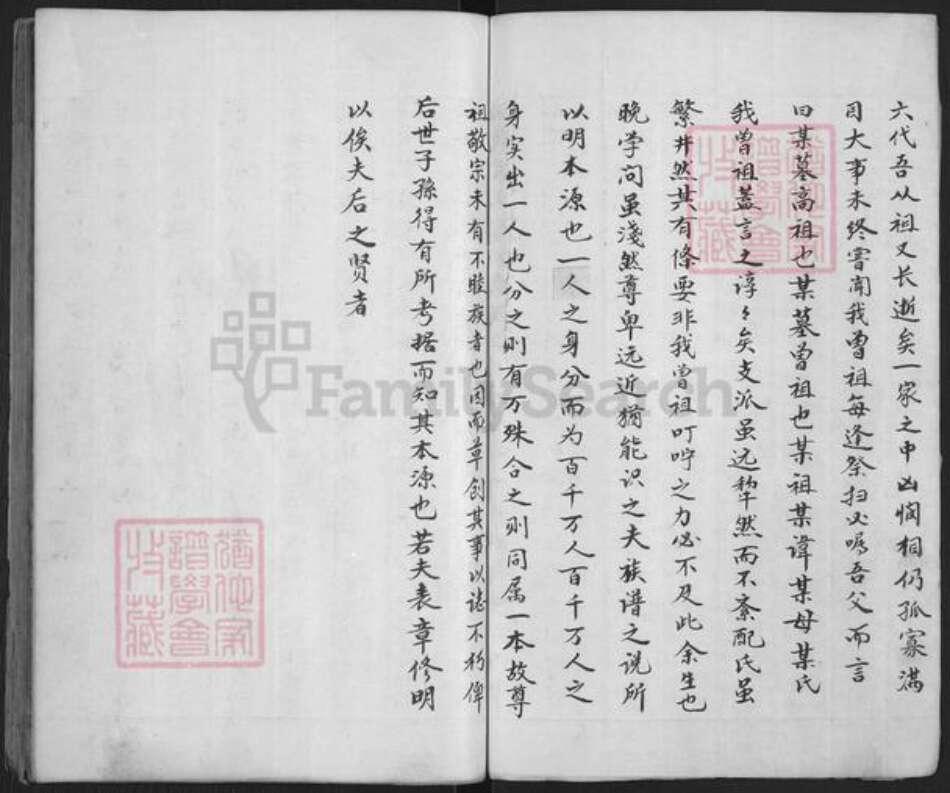 六代吾从祖又长逝矣一家之中凶悯相仍孤寡满
目大事未终窨闻我曾祖每逢祭扫必嘱吾父而言
曰某墓高祖也某墓曾祖也某祖某諱某母某氏
我曾祖蓋言之諄々矣支派虽远犂然而不紊配氏虽
繁井然其有條要非我曾祖叮咛之力必不及此余生也
晚学问虽淺然尊卑远近犹能识之夫族谱之说所
以明本源也一人之身分而为百千万人百千万人之
身实出一人也分之则有万殊合之则同属一本故尊
祖敬宗未有不睦族者也因而草创其事以誌不朽俾
后世子孫得有所考据而知其本源也若夫表章修明
以俟夫后之贤者
FamilySearch